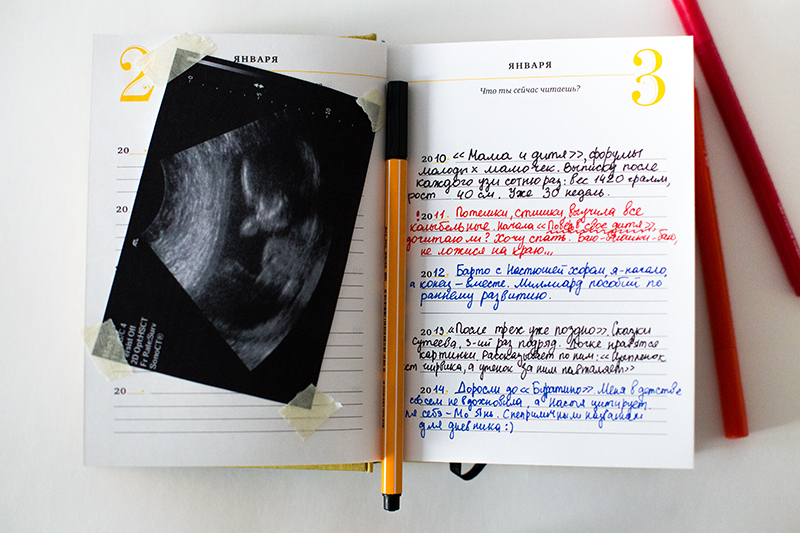 2
ЯНВАРЯ
20
20
20
C 4
ersist Off
2D OptHSCT
Fr Rate:Surv
SonoCT®
ЯНВАРЯ
3
Что ты сейчас читаешь?
2010. «Мама и дитя», форумы
молодых мамочек. Выписку после
каждого узи сотню раз: вес 1420 грамм,
рост 40 см. Уже 30 недель.
!2011. Потешки, стишки, выучила все
колыбельные. Начала «Поверь в свое дитя»,
дочитаю ли? Хочу спать. Баю-баюшки-баю,
не ложися на краю...
2012. Барто с Настюшей хором, я - начало,
а конец - вместе. Миллиард пособий по
раннему развитию.
2013 «После трех уже поздно». Сказки
Сутеева, 5-ый раз подряд. Дочке нравятся
картинки. Рассказывает по ним: «Цыпленок
ест чирвика, а утенок за ним
2014. Доросли до «Буратино» Меня в детстве
совсем не вдохновила, а Настя цитирует.
ля себя - Мо Янь. С неприличным названием
для дневника :)